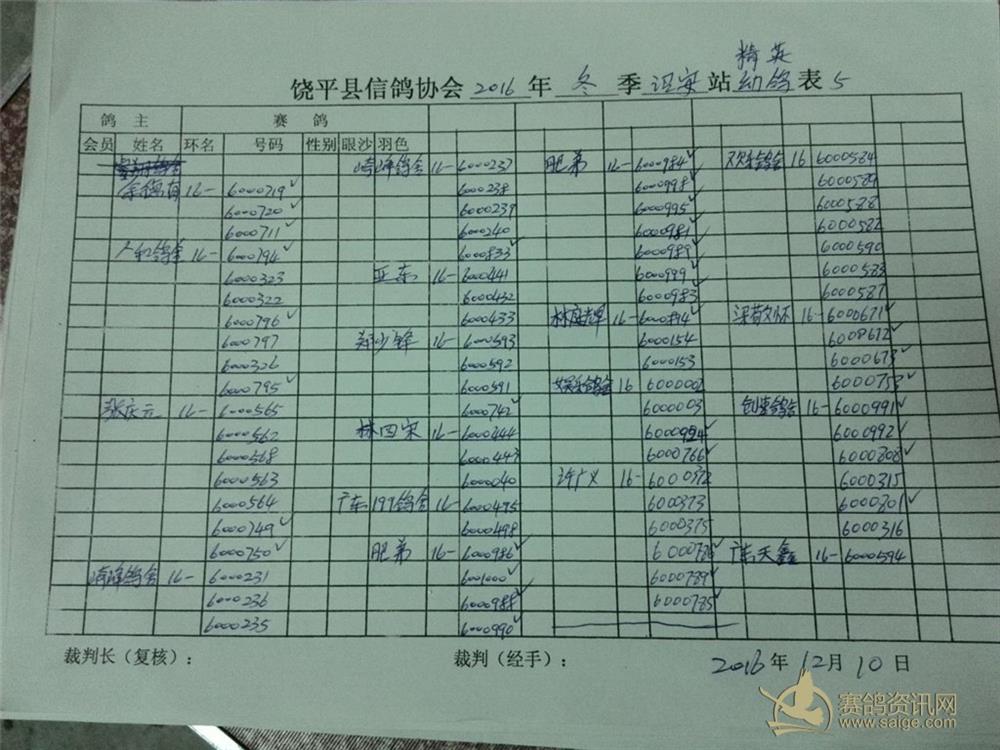 精英
饶平县信鸽协会 2016 年 冬 季 诏安 站 幼鸽 表 5
鸽 主 赛 鸽
会员 姓名 环名 号码 性别 眼沙 羽色
崎峰鸽舍 16-6000237 肥弟 16-6000984✓ 欢乐鸽舍 16 6000584
16-6000719✓ 6000238 6000998✓ 6000589
6000720✓ 6000239 6000995✓ 6000588
6000711✓ 6000240 6000981✓ 6000582
人和鸽舍 16-6000794✓ 6000833✓ 6000989✓ 6000590
6000323 亚东 16-6000441 6000999✓ 6000583
6000322 6000432 6000983✓ 6000587
6000796✓ 6000433 林庭辉 16-6000814✓ 16-6000671✓
6000797 郑少锋 16-6000593 6000154 6000672✓
6000326 6000592 6000153 6000673✓
6000795✓ 6000591 娱乐鸽舍 16 6000002 6000753✓
张庆元 16-6000565 6000742✓ 6000003 创速鸽舍 16-6000991✓
6000562 林四宋 16-6000444 6000924✓ 6000992✓
6000568 6000443 6000766✓ 6000808✓
6000563 6000040 许广义 16-6000372 6000315
6000564 广东199鸽舍 16-6000495 6000373 6000801✓
6000749✓ 6000498 6000375 6000316
6000750✓ 肥弟 16-6000986✓ 6000786✓ 天鑫 16-6000594
崎峰鸽舍 16-6000231 6001000✓ 6000789✓
6000236 6000988✓ 6000785✓
6000235 6000990✓
裁判长(复核): 裁判(经手): 2016年 12月 10日
赛鸽资讯网
www.saige.com